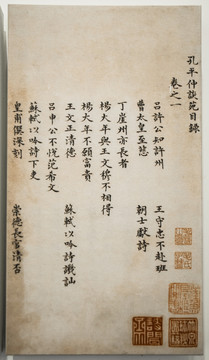 孔平仲談苑目錄
卷之一
呂許公知許州
王守忠不赴班
曹太皇至慈
朝士獻詩
丁崖州亦長者
楊大年與王文穆不相得
楊大年不願富貴
王文正清德
蘇軾以吟詩譏訕
呂申公不悅范希文
蘇軾以吟詩下吏
皇甫僎深刻
崇德長官清否